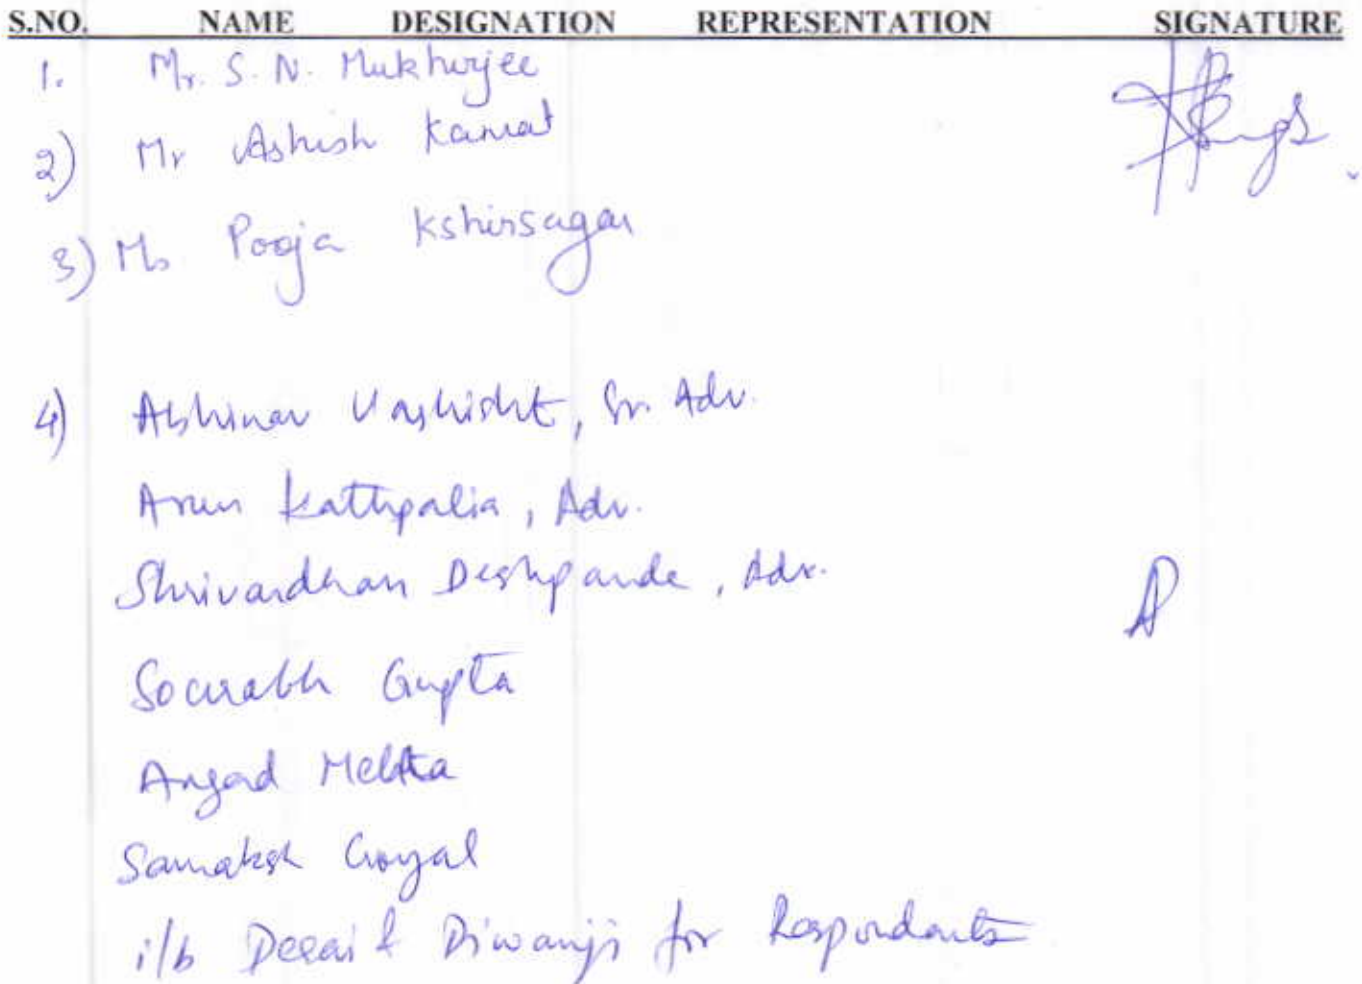 S.NO. NAME DESIGNATION REPRESENTATION SIGNATURE
1. Mr. S. N. Mukherjee
2) Mr Ashish Kamat
3) Ms Pooja Kshirsagar
4) Abhinav Vashisht, Sr. Adv.
Arun Kathpalia, Adv.
Shrivardhan Deshpande, Adv.
Sourabh Gupta
Angad Mehta
Samaksh Goyal
i/b Desai & Diwanji for Respondents